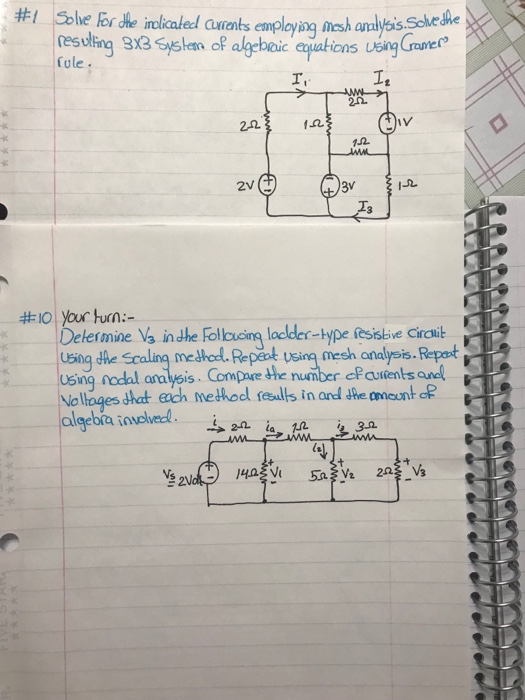 #1 Solve For the indicated currents employing mesh analysis. Solve the
resulting 3X3 system of algebraic equations using Cramer's
rule.
I₁
I₂
2Ω
2Ω
1Ω
1V
1Ω
2V
3V
1Ω
I₃
#10 Your turn:-
Determine V₃ in the Following ladder-type resistive circuit
using the scaling method. Repeat using mesh analysis. Repeat
using nodal analysis. Compare the number of currents and
Voltages that each method results in and the amount of
algebra involved.
2Ω
1Ω
3Ω
2Volt
14Ω
V₁
5Ω
V₂
2Ω
V₃
FIVE STAR